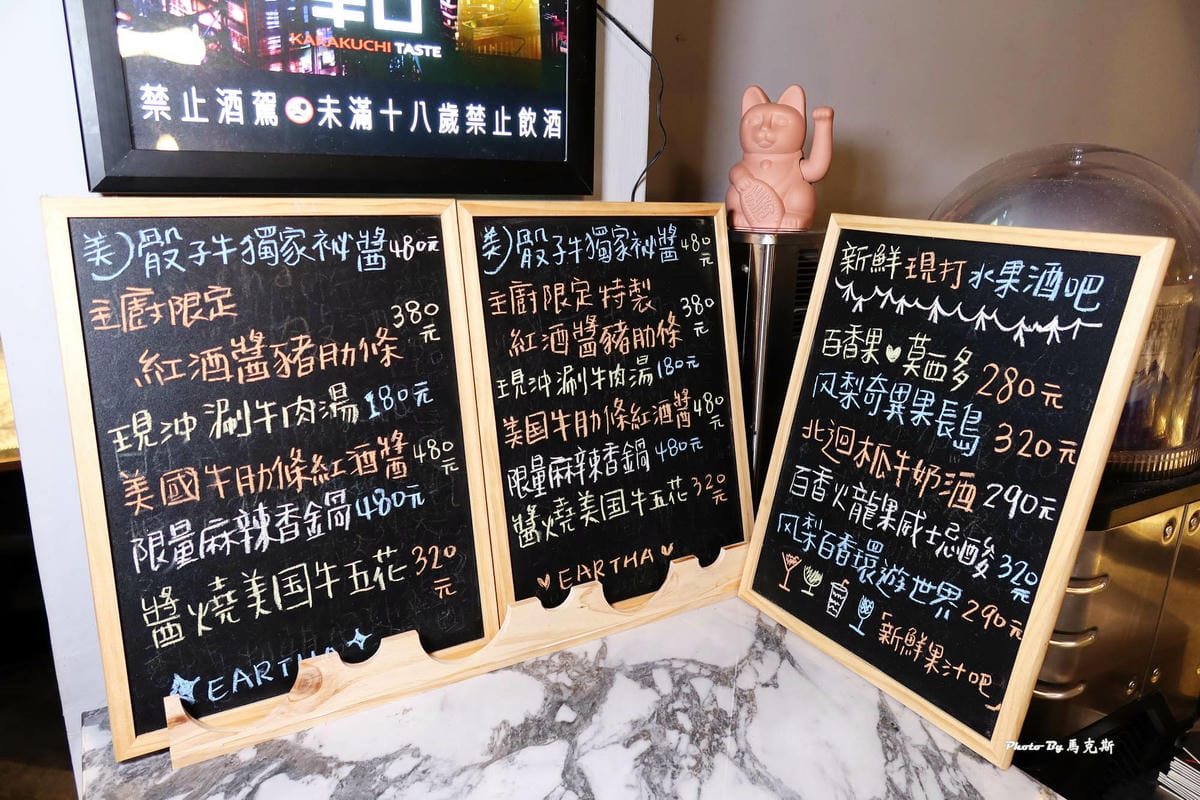 辛口
KARAKUCHI TASTE
禁止酒駕 未滿十八歲禁止飲酒
美)骰子牛獨家祕醬480元
主廚限定
紅酒醬豬肋條 380元
現沖涮牛肉湯 180元
美國牛肋條紅酒醬 480元
限量麻辣香鍋480元
醬燒美国牛五花 320元
EARTHA
美)骰子牛獨家祕醬480元
主廚限定特製
紅酒醬豬肋條 380元
現沖涮牛肉湯180元
美国牛肋條紅酒醬480元
限量麻辣香鍋 480元
醬燒美国牛五花320元
EARTHA
新鮮現打水果酒吧
百香果♥莫西多 280元
风梨奇異果長島 320元
北迴木瓜牛奶酒 290元
百香火龍果威士忌酸 320元
风梨百香環遊世界 290元
「新鮮果汁吧」
Photo By 馬克斯